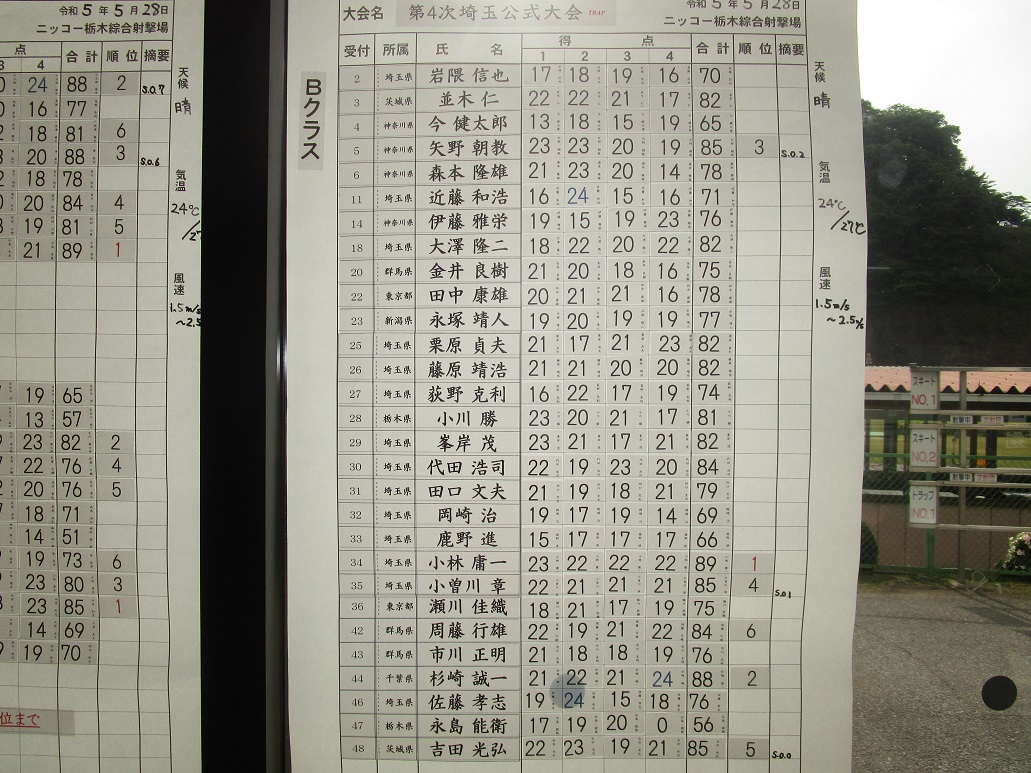 令和5年5月28日
ニッコー栃木綜合射撃場
点 合計 順位 摘要
3 4
24 88 2 S.O.7
16 77
18 81 6
20 88 3 S.O.6
18 78
20 84 4
19 81 5
21 89 1
19 65
13 57
23 82 2
22 76 4
20 76 5
18 71
14 51
19 73 6
23 80 3
23 85 1
14 69
19 70
位まで
天候
晴
気温
24℃
風速
1.5m/s
大会名 第4次埼玉公式大会 TRAP
令和5年5月28日
ニッコー栃木綜合射撃場
Bクラス
受付 所属 氏名 得点 合計 順位 摘要
1 2 3 4
2 埼玉県 岩隈 信也 17 18 19 16 70
3 茨城県 並木 仁 22 22 21 17 82
4 神奈川県 今 健太郎 13 18 15 19 65
5 神奈川県 矢野 朝教 23 23 20 19 85 3 S.O.2
6 神奈川県 森本 隆雄 21 23 20 14 78
11 埼玉県 近藤 和浩 16 24 15 16 71
14 神奈川県 伊藤 雅栄 19 15 19 23 76
18 埼玉県 大澤 隆二 18 22 20 22 82
20 群馬県 金井 良樹 21 20 18 16 75
22 東京都 田中 康雄 20 21 21 16 78
23 新潟県 永塚 靖人 19 20 19 19 77
25 埼玉県 栗原 貞夫 21 17 21 23 82
26 埼玉県 藤原 靖浩 21 21 20 20 82
27 埼玉県 荻野 克利 16 22 17 19 74
28 栃木県 小川 勝 23 20 21 17 81
29 埼玉県 峯岸 茂 23 21 17 21 82
30 埼玉県 代田 浩司 22 19 23 20 84
31 埼玉県 田口 文夫 21 19 18 21 79
32 埼玉県 岡崎 治 19 17 19 14 69
33 埼玉県 鹿野 進 15 17 17 17 66
34 埼玉県 小林 庸一 23 22 22 22 89 1
35 埼玉県 小曽川 章 22 21 21 21 85 4 S.O.1
36 東京都 瀬川 佳織 18 21 17 19 75
42 群馬県 周藤 行雄 22 19 21 22 84 6
43 群馬県 市川 正明 21 18 18 19 76
44 千葉県 杉崎 誠一 21 22 21 24 88 2
46 埼玉県 佐藤 孝志 19 24 15 18 76
47 栃木県 永島 能衛 17 19 20 0 56
48 茨城県 吉田 光弘 22 23 19 21 85 5 S.O.0
天候
晴
気温
24℃
/27℃
風速
1.5m/s
~2.5m/s
スキート
NO.1
スキート
NO.2
トラップ
NO.1